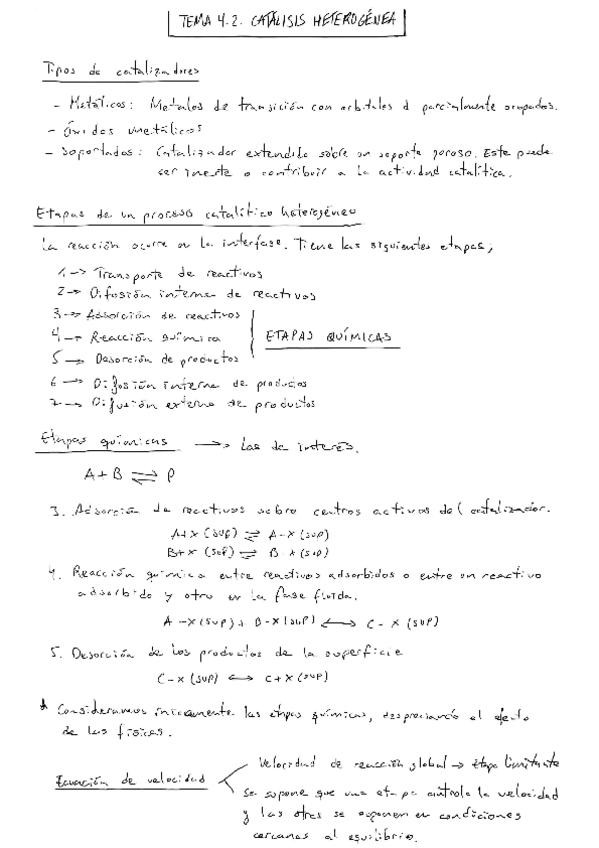 TEMA 4.2. CATÁLISIS HETEROGÉNEA
Tipos de catalizadores
- Metálicos: Metales de transición con orbitales d parcialmente ocupados.
- Óxidos metálicos
- Soportados: Catalizador extendido sobre un soporte poroso. Este puede
ser inerte o contribuir a la actividad catalítica.
Etapas de un proceso catalítico heterogéneo
La reacción ocurre en la interfase. Tiene las siguientes etapas;
1 → Transporte de reactivos
2 → Difusión interna de reactivos
3 → Adsorción de reactivos
4 → Reacción química ETAPAS QUÍMICAS
5 → Desorción de productos
6 → Difusión interna de productos
7 → Difusión externa de productos
Etapas químicas → Las de interés.
A + B ⇌ P
3. Adsorción de reactivos sobre centros activos del catalizador.
A + X (sup) ⇌ A-X (sup)
B + X (sup) ⇌ B-X (sup)
4. Reacción química entre reactivos adsorbidos o entre un reactivo
adsorbido y otro en la fase fluida.
A-X (sup) + B-X (sup) ⟷ C-X (sup)
5. Desorción de los productos de la superficie
C-X (sup) ⟷ C + X (sup)
* Consideramos únicamente las etapas químicas, despreciando el efecto
de las físicas.
Ecuación de velocidad
Velocidad de reacción global → etapa limitante
Se supone que una etapa controla la velocidad
y las otras se suponen en condiciones
cercanas al equilibrio.